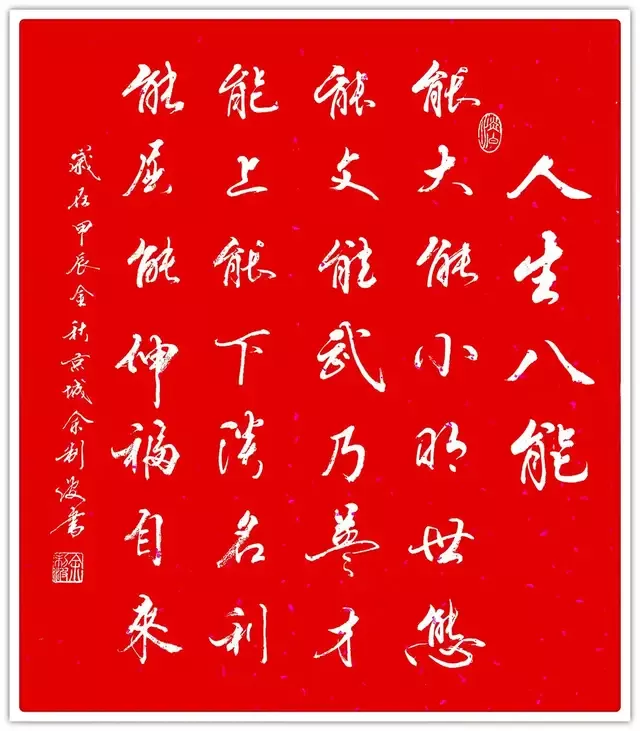 人生八能
能大能小明世態
能文能武乃才
能上能下淡名利
能屈能伸福自來
歲在甲辰金秋京城余制俊書